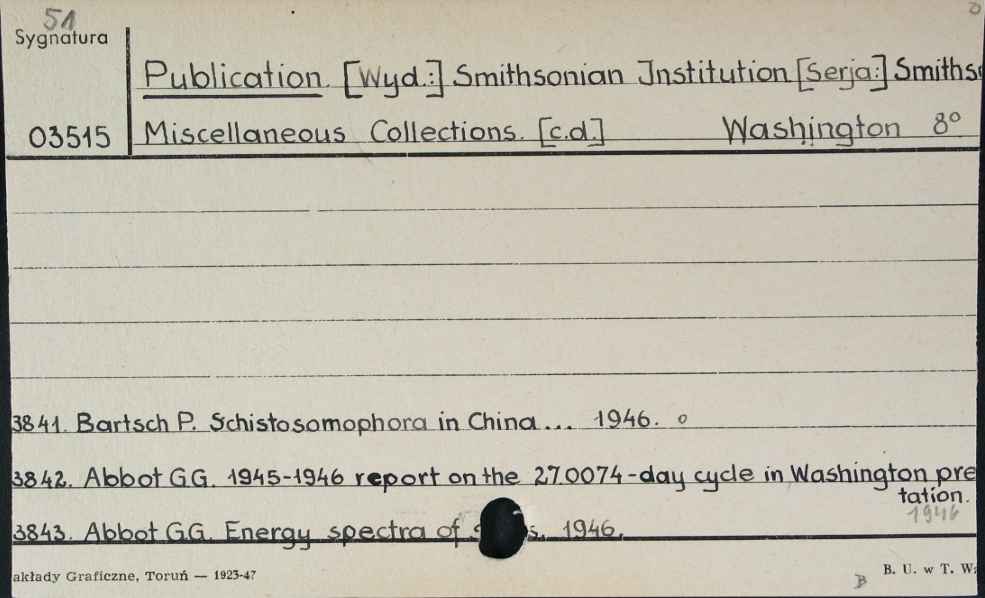 51
Sygnatura
Publication. [Wyd.:] Smithsonian Institution [Serja:] Smithso
03515 Miscellaneous Collections. [c.d.] Washington 8°
3841. Bartsch P. Schistosomophora in China... 1946. o
3842. Abbot G.G. 1945-1946 report on the 27.0074-day cycle in Washington pre
tation.
1946
3843. Abbot G.G. Energy spectra of s s. 1946.
akłady Graficzne, Toruń — 1923-47
B
B. U. w T. W